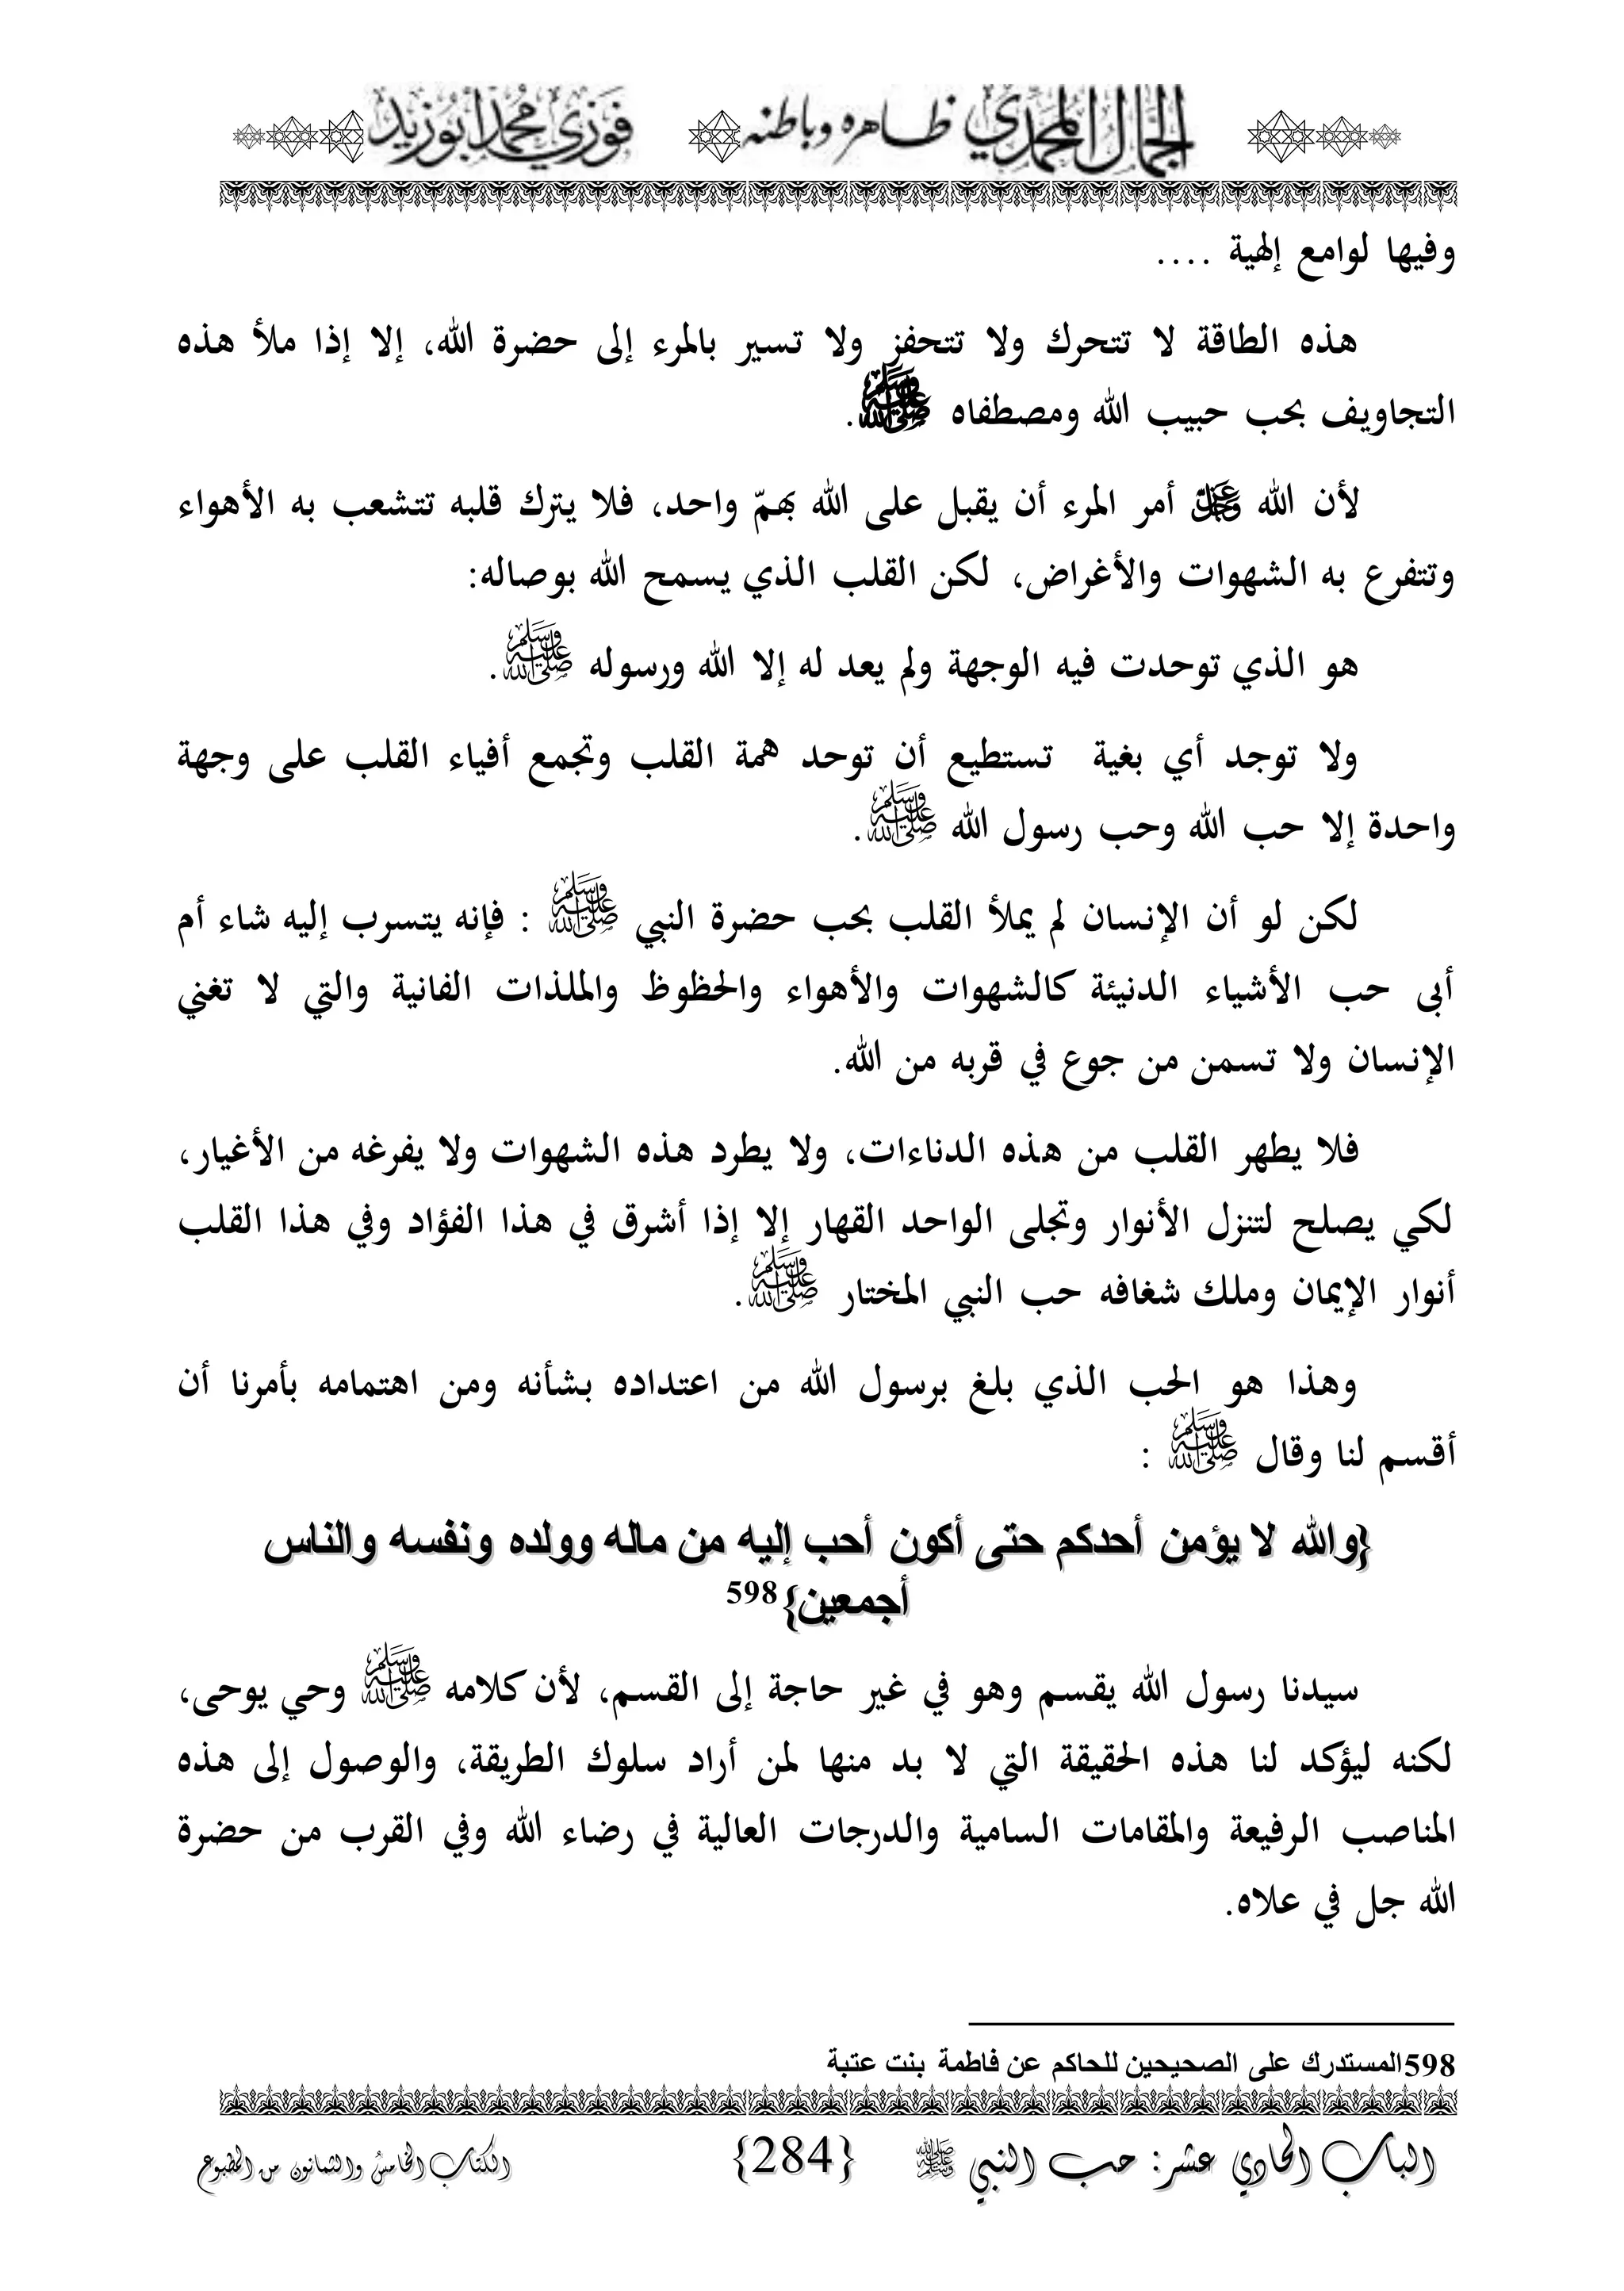 الجمال المحمدي ظاهره وباطنه فوزي محمد أبوزيد
وفيها لوامع إلهية ....
هذه الطاقة لا تتحرك ولا تتحفز ولا تسير بالمرء إلى حضرة الله، إلا إذا ملأ هذه
التجاويف بحب حبيب الله ومصطفاه ﷺ.
لأن الله عز وجل أمر المرء أن يقبل على الله بهمّ واحد، فلا يترك قلبه تتشعب به الأهواء
وتتفرع به الشهوات والأغراض، لكن القلب الذي يسمح الله بوصاله:
هو الذي توحدت فيه الوجهة ولم يعد له إلا الله ورسوله ﷺ.
ولا توجد أي بغية تستطيع أن توحد همة القلب وتجمع أفياء القلب على وجهة
واحدة إلا حب الله وحب رسول الله ﷺ.
لكن لو أن الإنسان لم يملأ القلب بحب حضرة النبي ﷺ : فإنه يتسرب إليه شاء أم
أبى حب الأشياء الدنيئة كالشهوات والأهواء والحظوظ والملذات الفانية والتي لا تغني
الإنسان ولا تسمن من جوع في قربه من الله.
فلا يطهر القلب من هذه الدناءات، ولا يطرد هذه الشهوات ولا يفرغه من الأغيار،
لكي يصلح لتنزل الأنوار وتجلى الواحد القهار إلا إذا أشرق في هذا الفؤاد وفي هذا القلب
أنوار الإيمان وملك شغافه حب النبي المختار ﷺ.
وهذا هو الحب الذي بلغ برسول الله من اعتداده بشأنه ومن اهتمامه بأمرنا أن
أقسم لنا وقال ﷺ :
{والله لا يؤمن أحدكم حتى أكون أحب إليه من ماله وولده ونفسه والناس
أجمعين}598
سيدنا رسول الله يقسم وهو في غير حاجة إلى القسم، لأن كلامه ﷺ وحي يوحى،
لكنه ليؤكد لنا هذه الحقيقة التي لا بد منها لمن أراد سلوك الطريقة، والوصول إلى هذه
المناصب الرفيعة والمقامات السامية والدرجات العالية في رضاء الله وفي القرب من حضرة
الله جل في علاه.
598المستدرك على الصحيحين للحاكم عن فاطمة بنت عتبة
الباب الحادي عشر: حب النبي ﷺ {284} الكتاب الخامس والثمانون من المطبوع